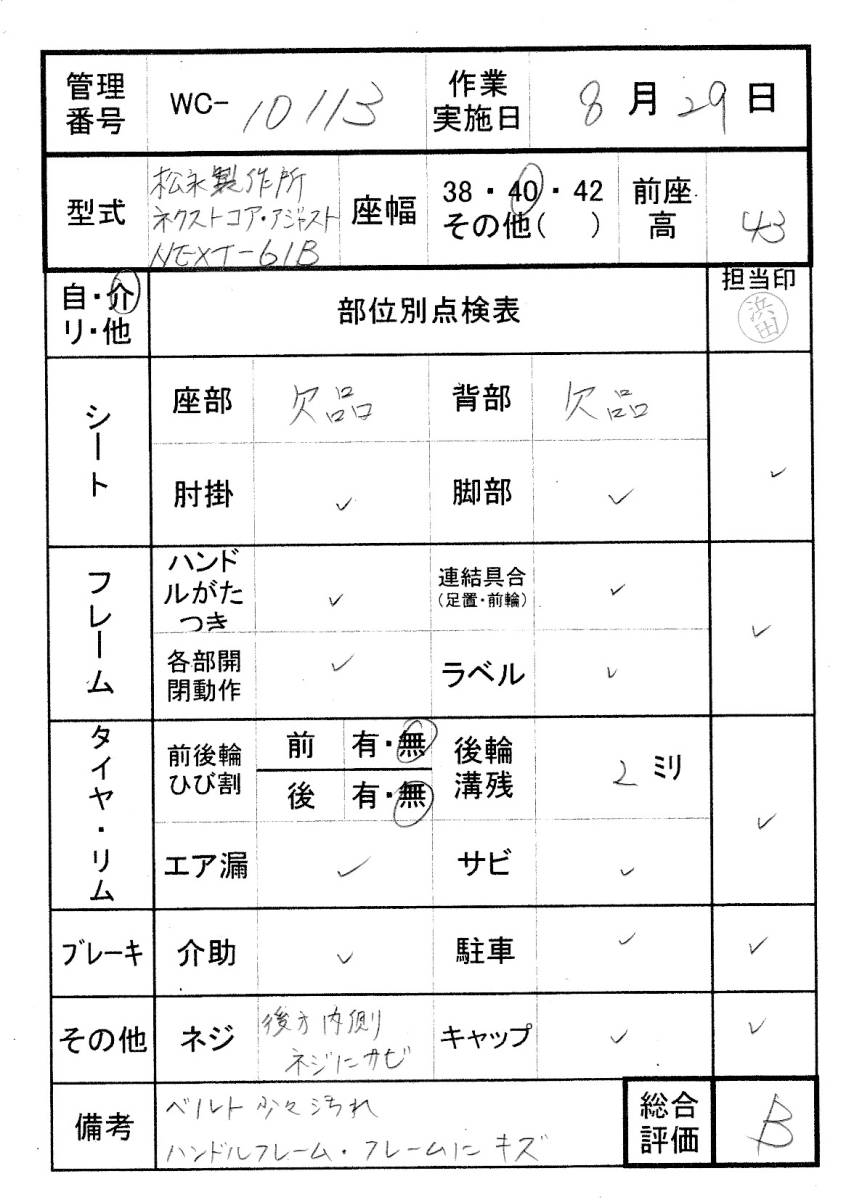 管理番号 WC-10113 作業実施日 8月29日
型式 松永製作所 座幅 38・40・42 前座高 43
ネクストコア・アジャスト その他( )
NEXT-61B
自・介 部位別点検表 担当印
リ・他 浜田
シート 座部 欠品 背部 欠品 ✓
肘掛 ✓ 脚部 ✓
フレーム ハンドルがたつき ✓ 連結具合(足置・前輪) ✓ ✓
各部開閉動作 ✓ ラベル ✓
タイヤ・リム 前後輪ひび割 前 有・無 後輪溝残 2ミリ ✓
後 有・無
エア漏 ✓ サビ ✓
ブレーキ 介助 ✓ 駐車 ✓ ✓
その他 ネジ 後方内側 キャップ ✓ ✓
ネジにサビ
備考 ベルト少々汚れ 総合評価 B
ハンドルフレーム・フレームにキズ